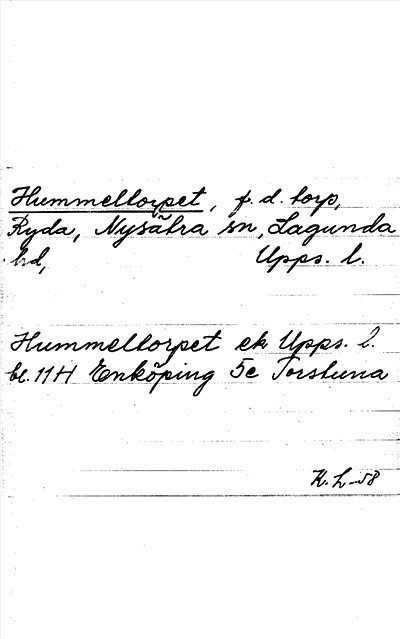 Hummeltorpet, f. d. torp,
Ryda, Nysätra sn, Lagunda
hd, Upps. l.
Hummeltorpet ek Upps. l.
bl. 11H Enköping 5e Torstuna
K. L-58